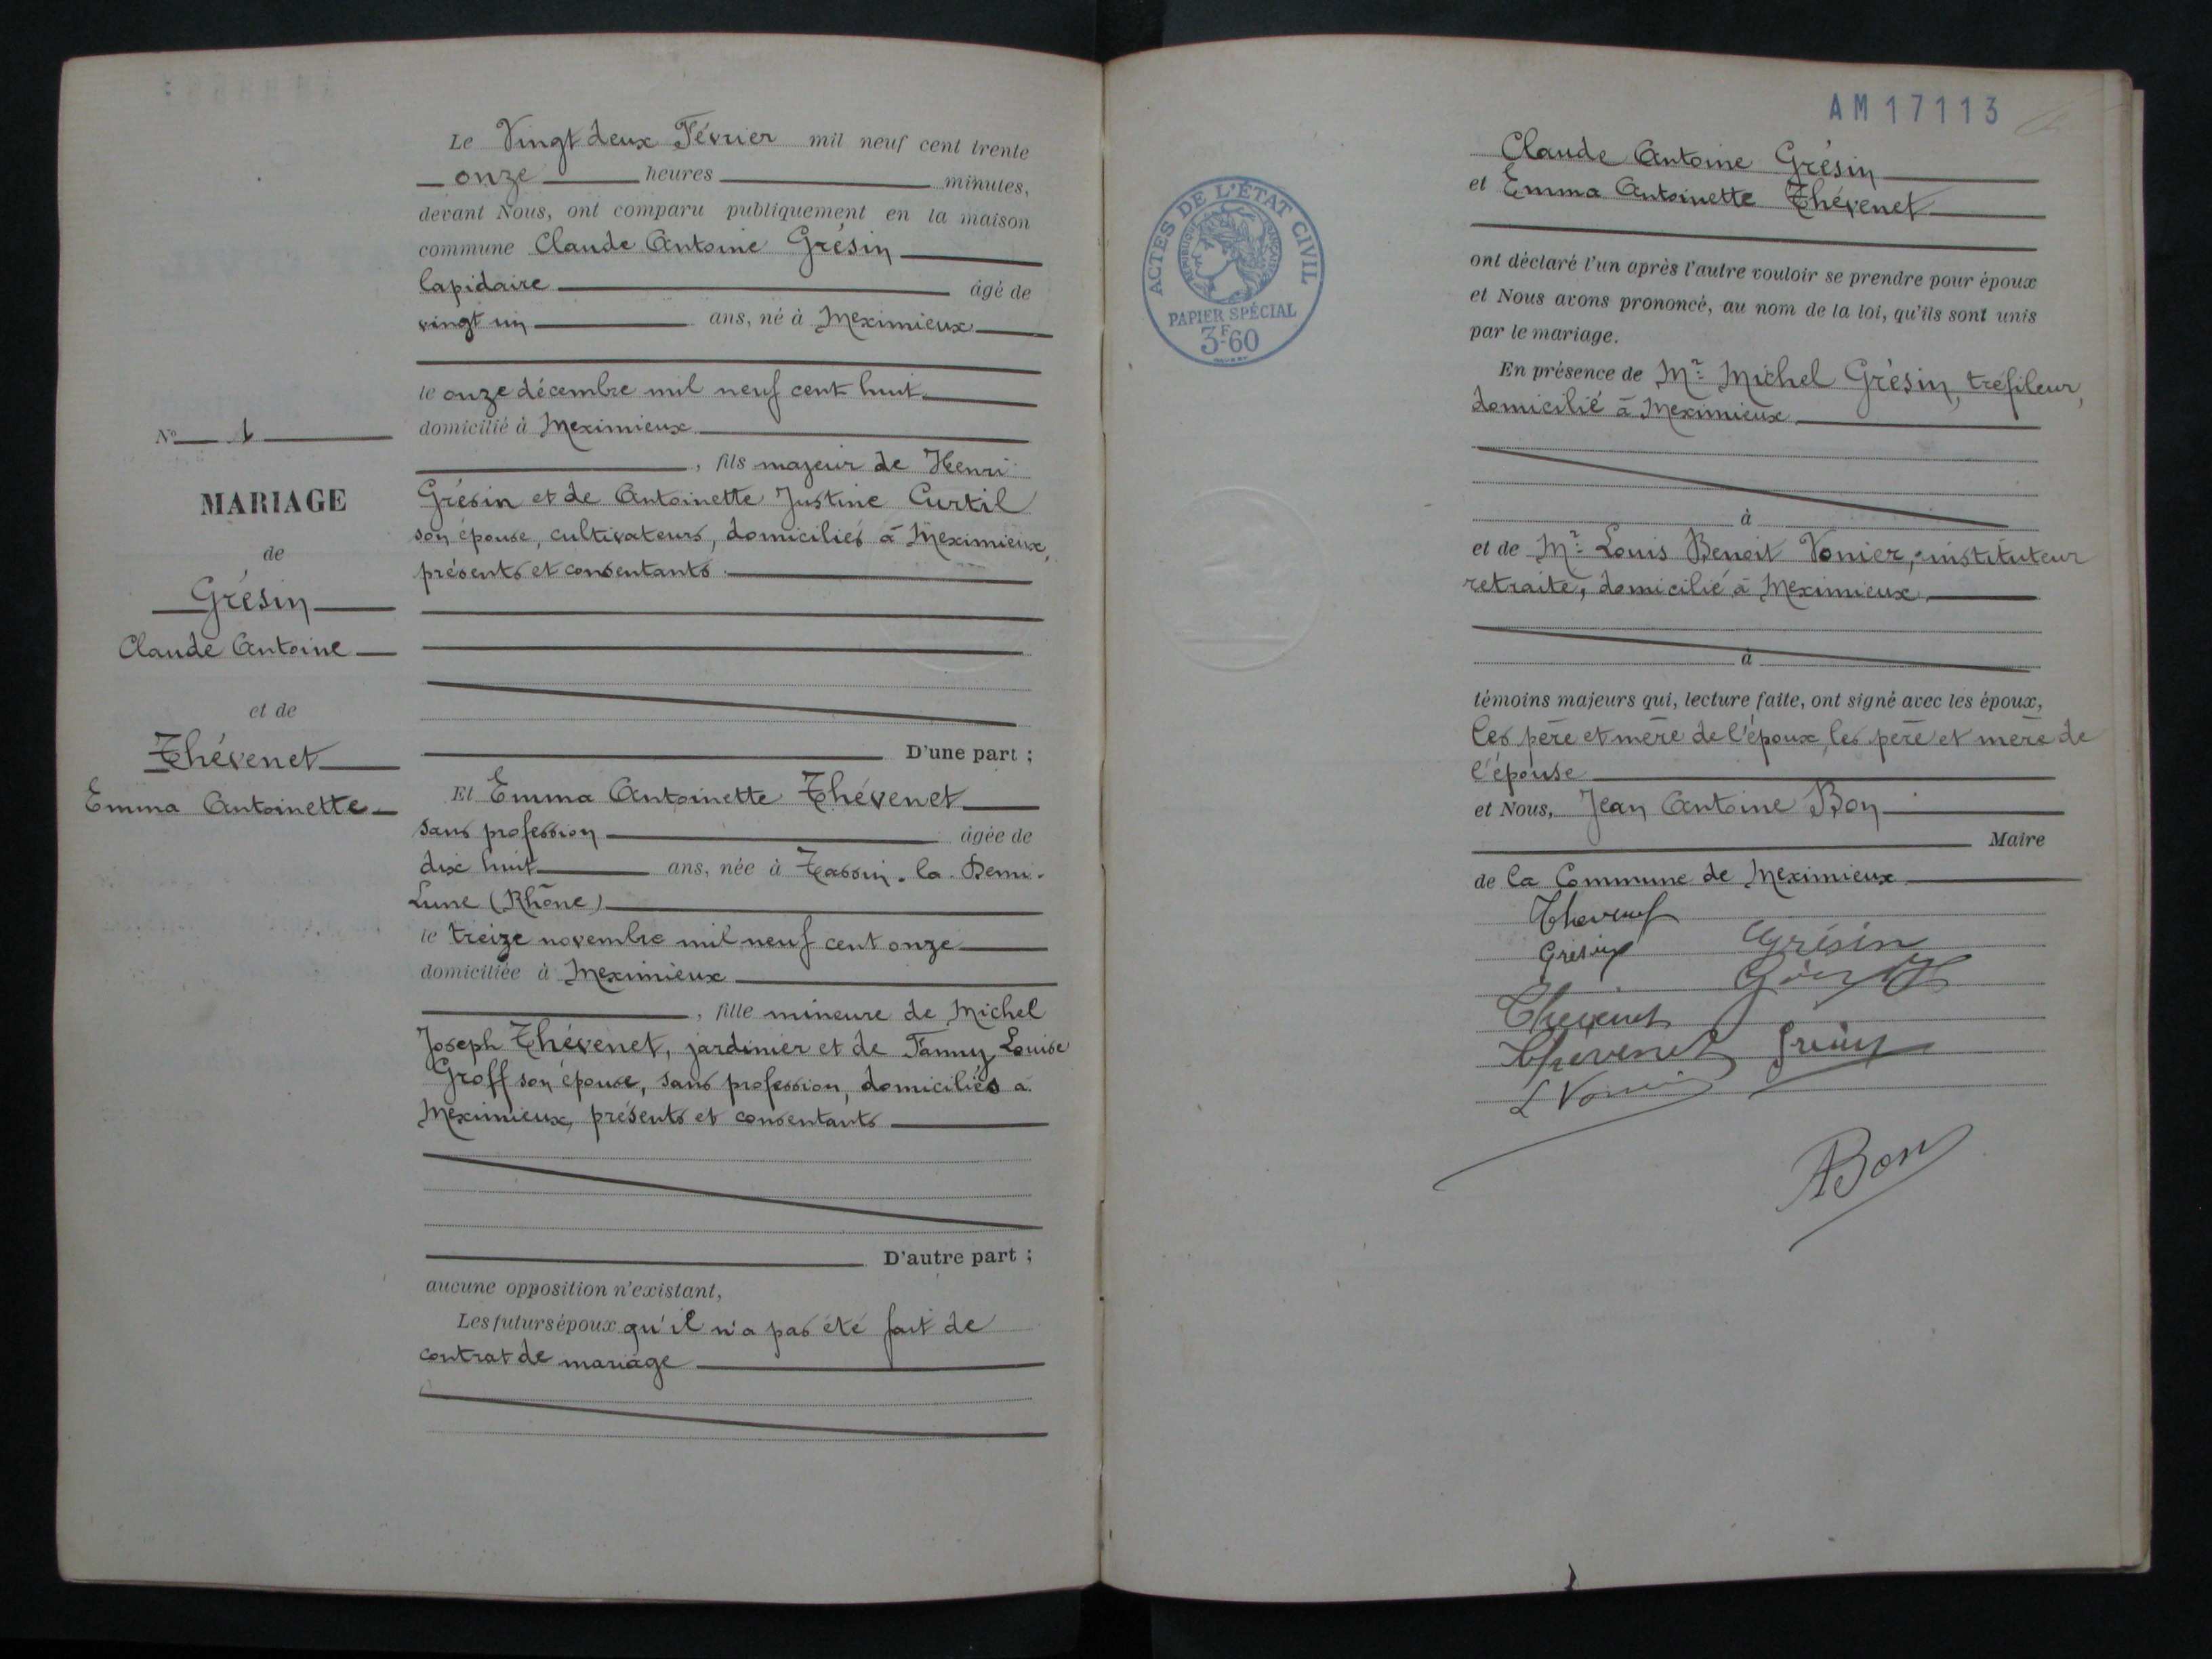 Le Vingt deux Février mil neuf cent trente
onze heures minutes,
devant Nous, ont comparu publiquement en la maison
commune Claude Antoine Grésin
lapidaire âgé de
vingt un ans, né à Meximieux
le onze décembre mil neuf cent huit
domicilié à Meximieux
, fils majeur de Henri
Grésin et de Antoinette Justine Curtil
son épouse, cultivateurs, domiciliés à Meximieux,
présents et consentants
D'une part ;
Et Emma Antoinette Thévenet
sans profession âgée de
dix huit ans, née à Tassin-la-Demi-
Lune (Rhône)
le treize novembre mil neuf cent onze
domiciliée à Meximieux
, fille mineure de Michel
Joseph Thévenet, jardinier et de Fanny Louise
Groff son épouse, sans profession, domiciliés à
Meximieux, présents et consentants
D'autre part ;
aucune opposition n'existant,
Les futurs époux qu'il n'a pas été fait de
contrat de mariage
No
MARIAGE
de
Grésin
Claude Antoine
et de
Thévenet
Emma Antoinette
AM17113
ACTES DE L'ÉTAT CIVIL
RÉPUBLIQUE FRANÇAISE
PAPIER SPÉCIAL
3F.60
Claude Antoine Grésin
et Emma Antoinette Thévenet
ont déclaré l'un après l'autre vouloir se prendre pour époux
et Nous avons prononcé, au nom de la loi, qu'ils sont unis
par le mariage.
En présence de Mr Michel Grésin, tréfileur,
domicilié à Meximieux
à
et de Mr Louis Benoit Vonier, instituteur
retraité, domicilié à Meximieux
à
témoins majeurs qui, lecture faite, ont signé avec les époux,
les père et mère de l'époux, les père et mère de
l'épouse
et Nous, Jean Antoine Bon
Maire
de la Commune de Meximieux
Thevenet
Grésin Grésin
Thevenet
Thévenet
L Vonier
ABon